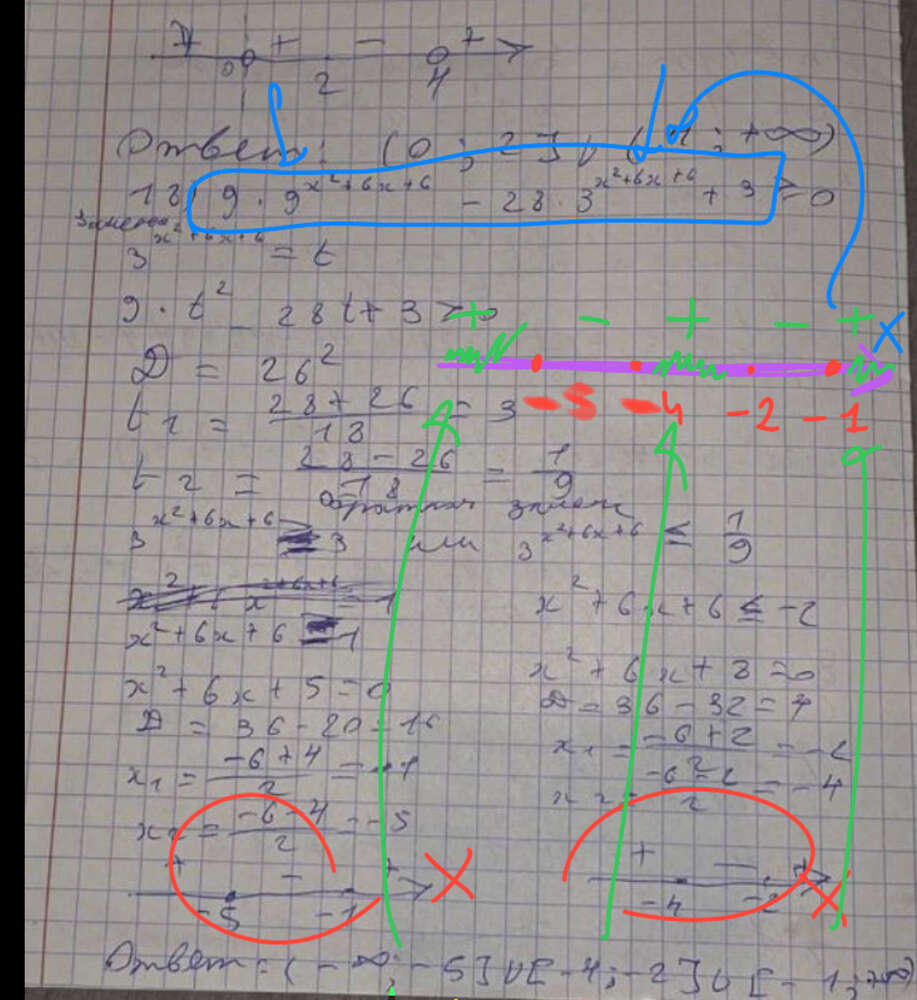 + - + 
0 2 4
Ответ: (0; 2] ∪ (4; +∞)
18) 9 · 9^{x²+6x+6} - 28 · 3^{x²+6x+6} + 3 ≥ 0
замена
3^{x²+6x+6} = t
9 · t² - 28t + 3 ≥ 0
+ - + - + X
D = 26²
-5 -4 -2 -1
t₁ = (28+26)/18 = 3
t₂ = (28-26)/18 = 1/9
обратная замен
3^{x²+6x+6} ≥ 3 или 3^{x²+6x+6} ≤ 1/9
x²+6x+6 1
x²+6x+6 ≤ -2
x²+6x+5=0
x²+6x+8=0
D = 36-20=16
D = 36-32=4
x₁ = (-6+4)/2 = -1
x₁ = (-6+2)/2 = -2
x₂ = (-6-4)/2 = -5
x₂ = (-6-2)/2 = -4
+ - + X
-5 -1
+ - + X
-4 -2
Ответ: (-∞; -5] ∪ [-4; -2] ∪ [-1; +∞)